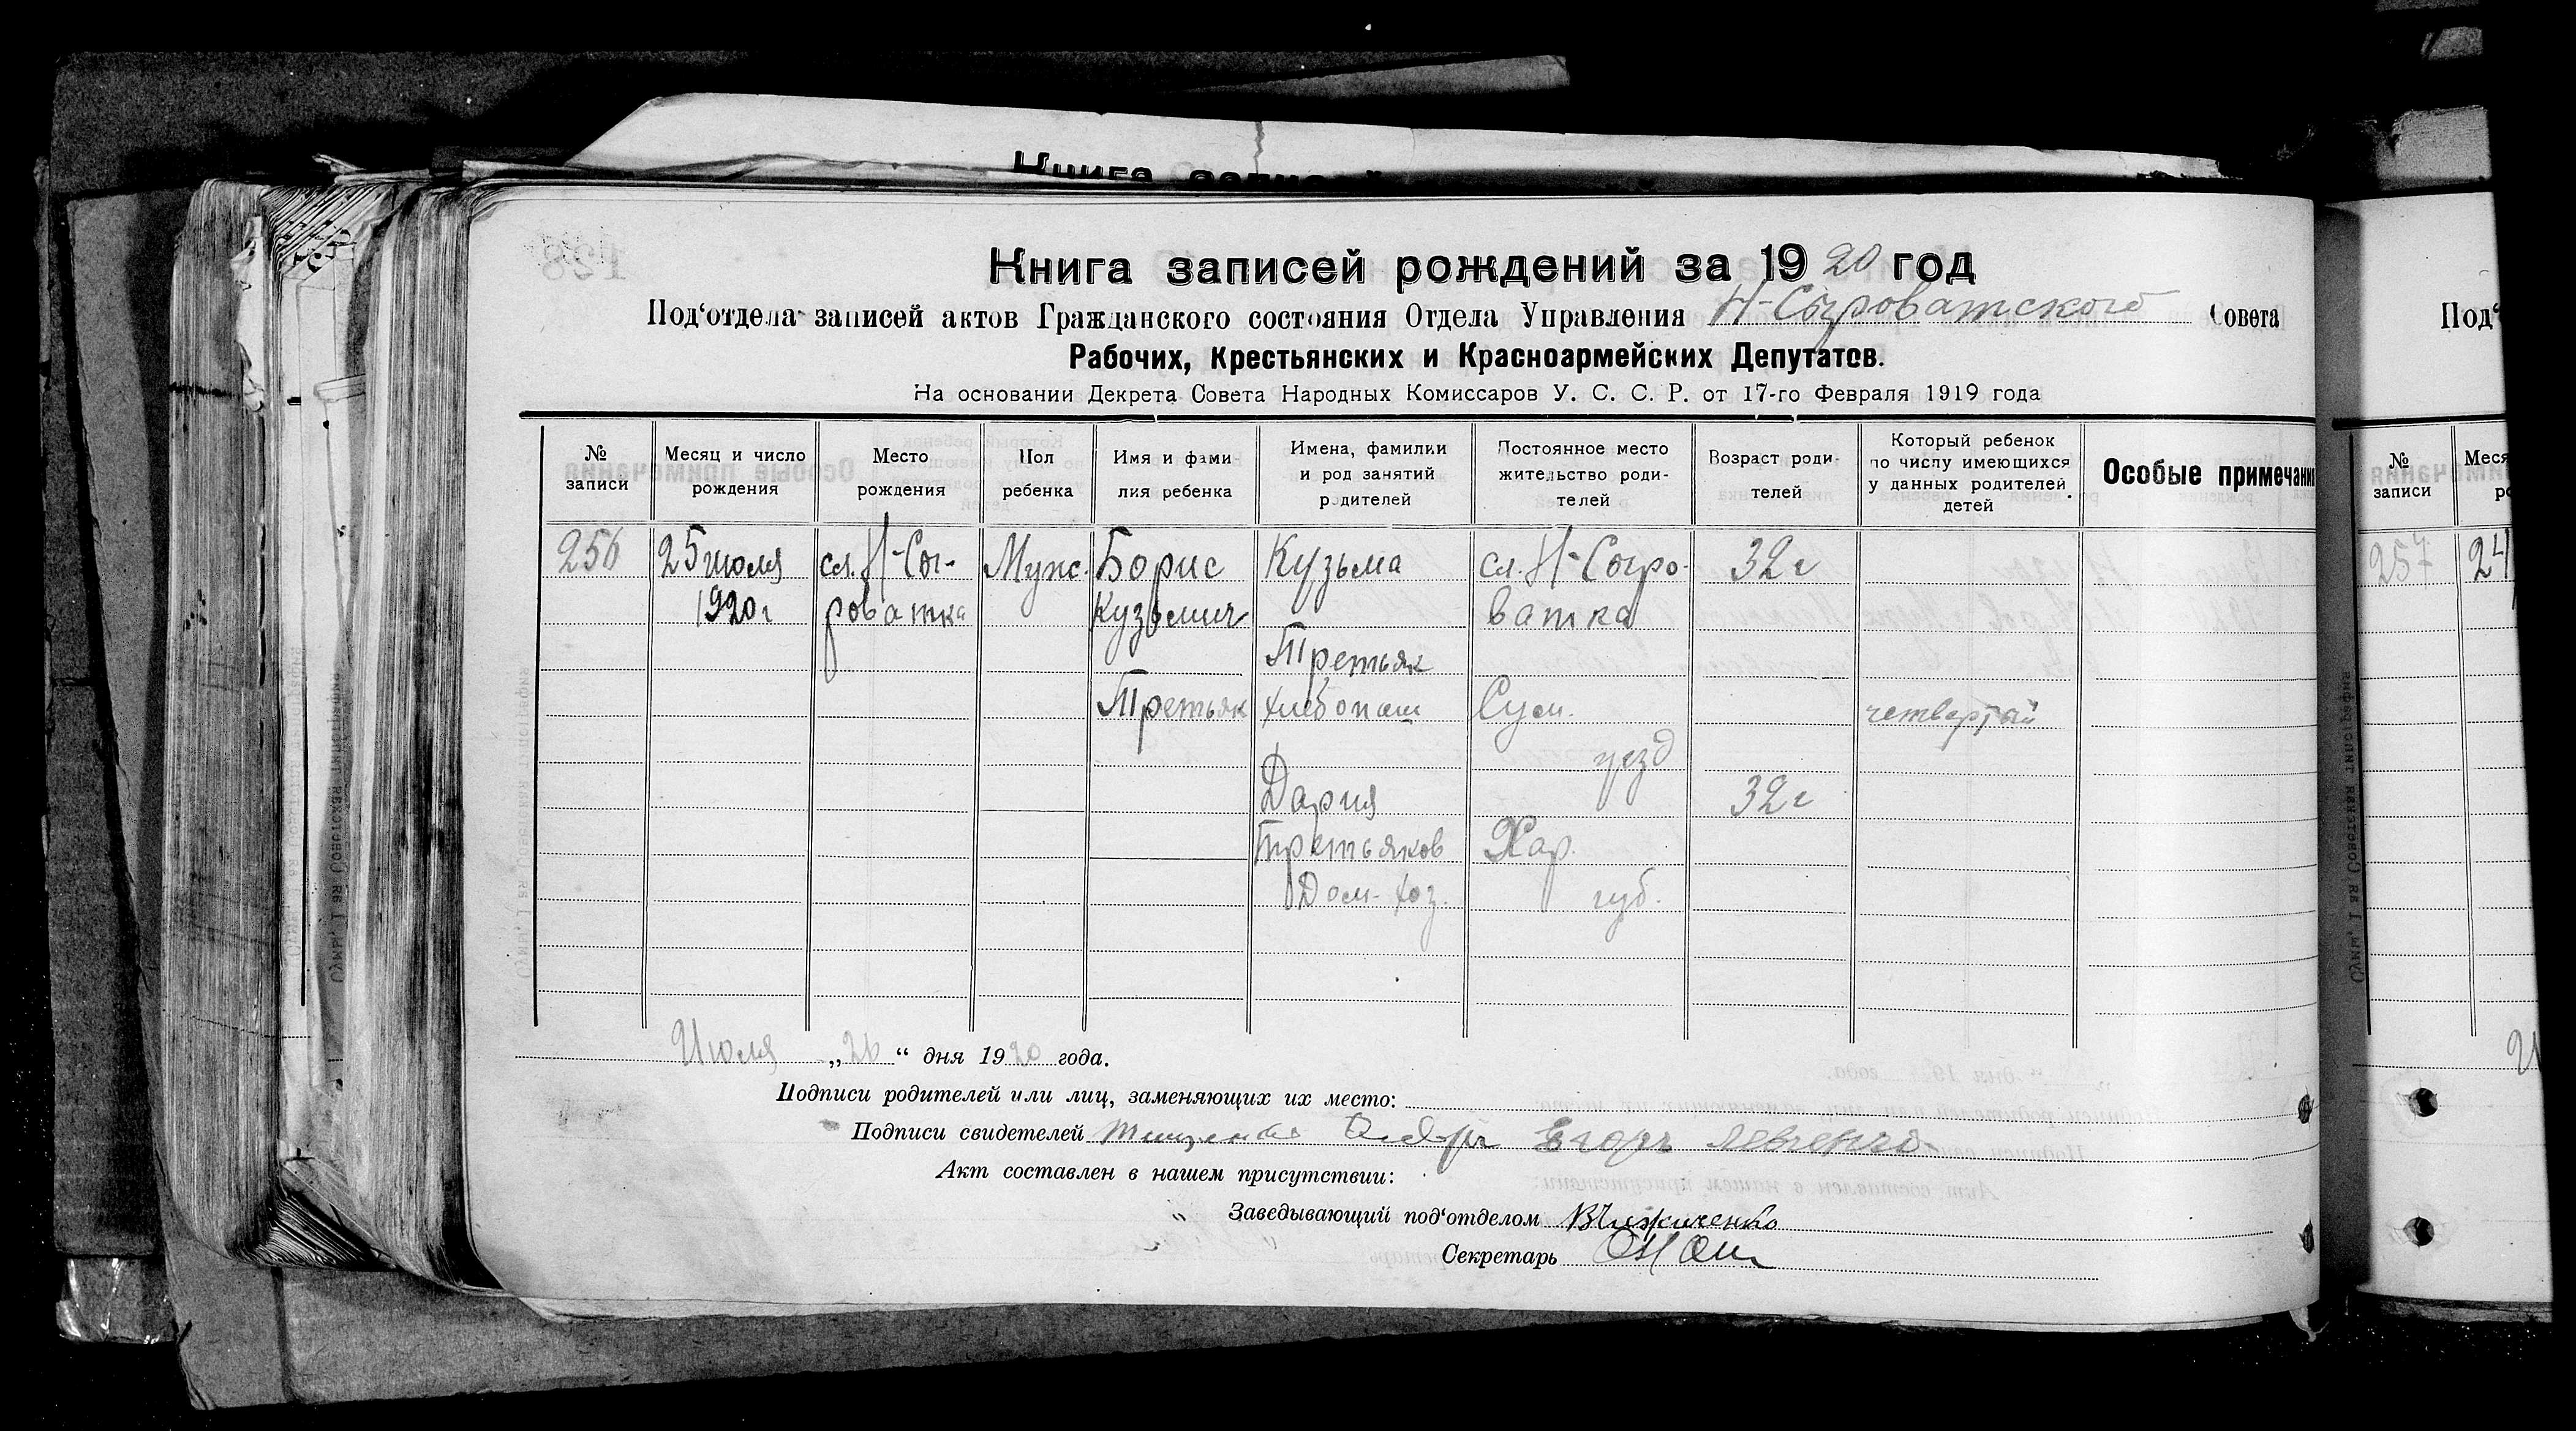 Книга записей рождений за 1920 год
Под‘отдела записей актов Гражданского состояния Отдела Управления Н-Сыроватского Совета
Рабочих, Крестьянских и Красноармейских Депутатов.
На основании Декрета Совета Народных Комиссаров У. С. С. Р. от 17-го Февраля 1919 года
№ записи
Месяц и число рождения
Место рождения
Пол ребенка
Имя и фамилия ребенка
Имена, фамилии и род занятий родителей
Постоянное место жительство родителей
Возраст родителей
Который ребенок по числу имеющихся у данных родителей детей
Особые примечани
256 25 июля сл. Н-Сы- Муж. Борис Кузьма сл. Н-Сыро- 32 г
1920 г роватка Кузьмич ватка
Третьяк
Третьяк хлебопаш Сум. четвертый
уезд
Дария 32 г
Третьяков Хар.
Дом. хоз. губ.
Июля „26“ дня 1920 года.
Подписи родителей или лиц, заменяющих их место:
Подписи свидетелей Егоръ Левченко
Акт составлен в нашем присутствии:
Заведывающий под‘отделом
Секретарь
Под‘
№ записи
Меся
257 24